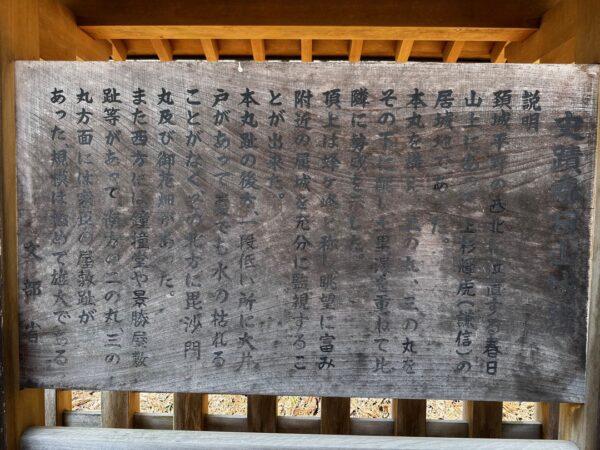 史蹟春日山
説明
頚城平野の西北に位置する春日
山上にあ 上杉輝虎(謙信)の
居城地であ た。
本丸を 二の丸、三の丸を
その下に 里 を重ねて比
隣に を
頂上は蜂ヶ峰と称し眺望に富み
附近の属城を充分に監視するこ
とが出来た。
本丸趾の後方一段低い所に大井
戸があって夏でも水の枯れる
ことがなくその北方に毘沙門
丸及び御花畑があった。
また西方には鐘撞堂や景勝屋敷
趾等があって南方の二の丸、三の
丸方面には家臣の屋敷趾が
あった規模は極めて雄大である
文部省